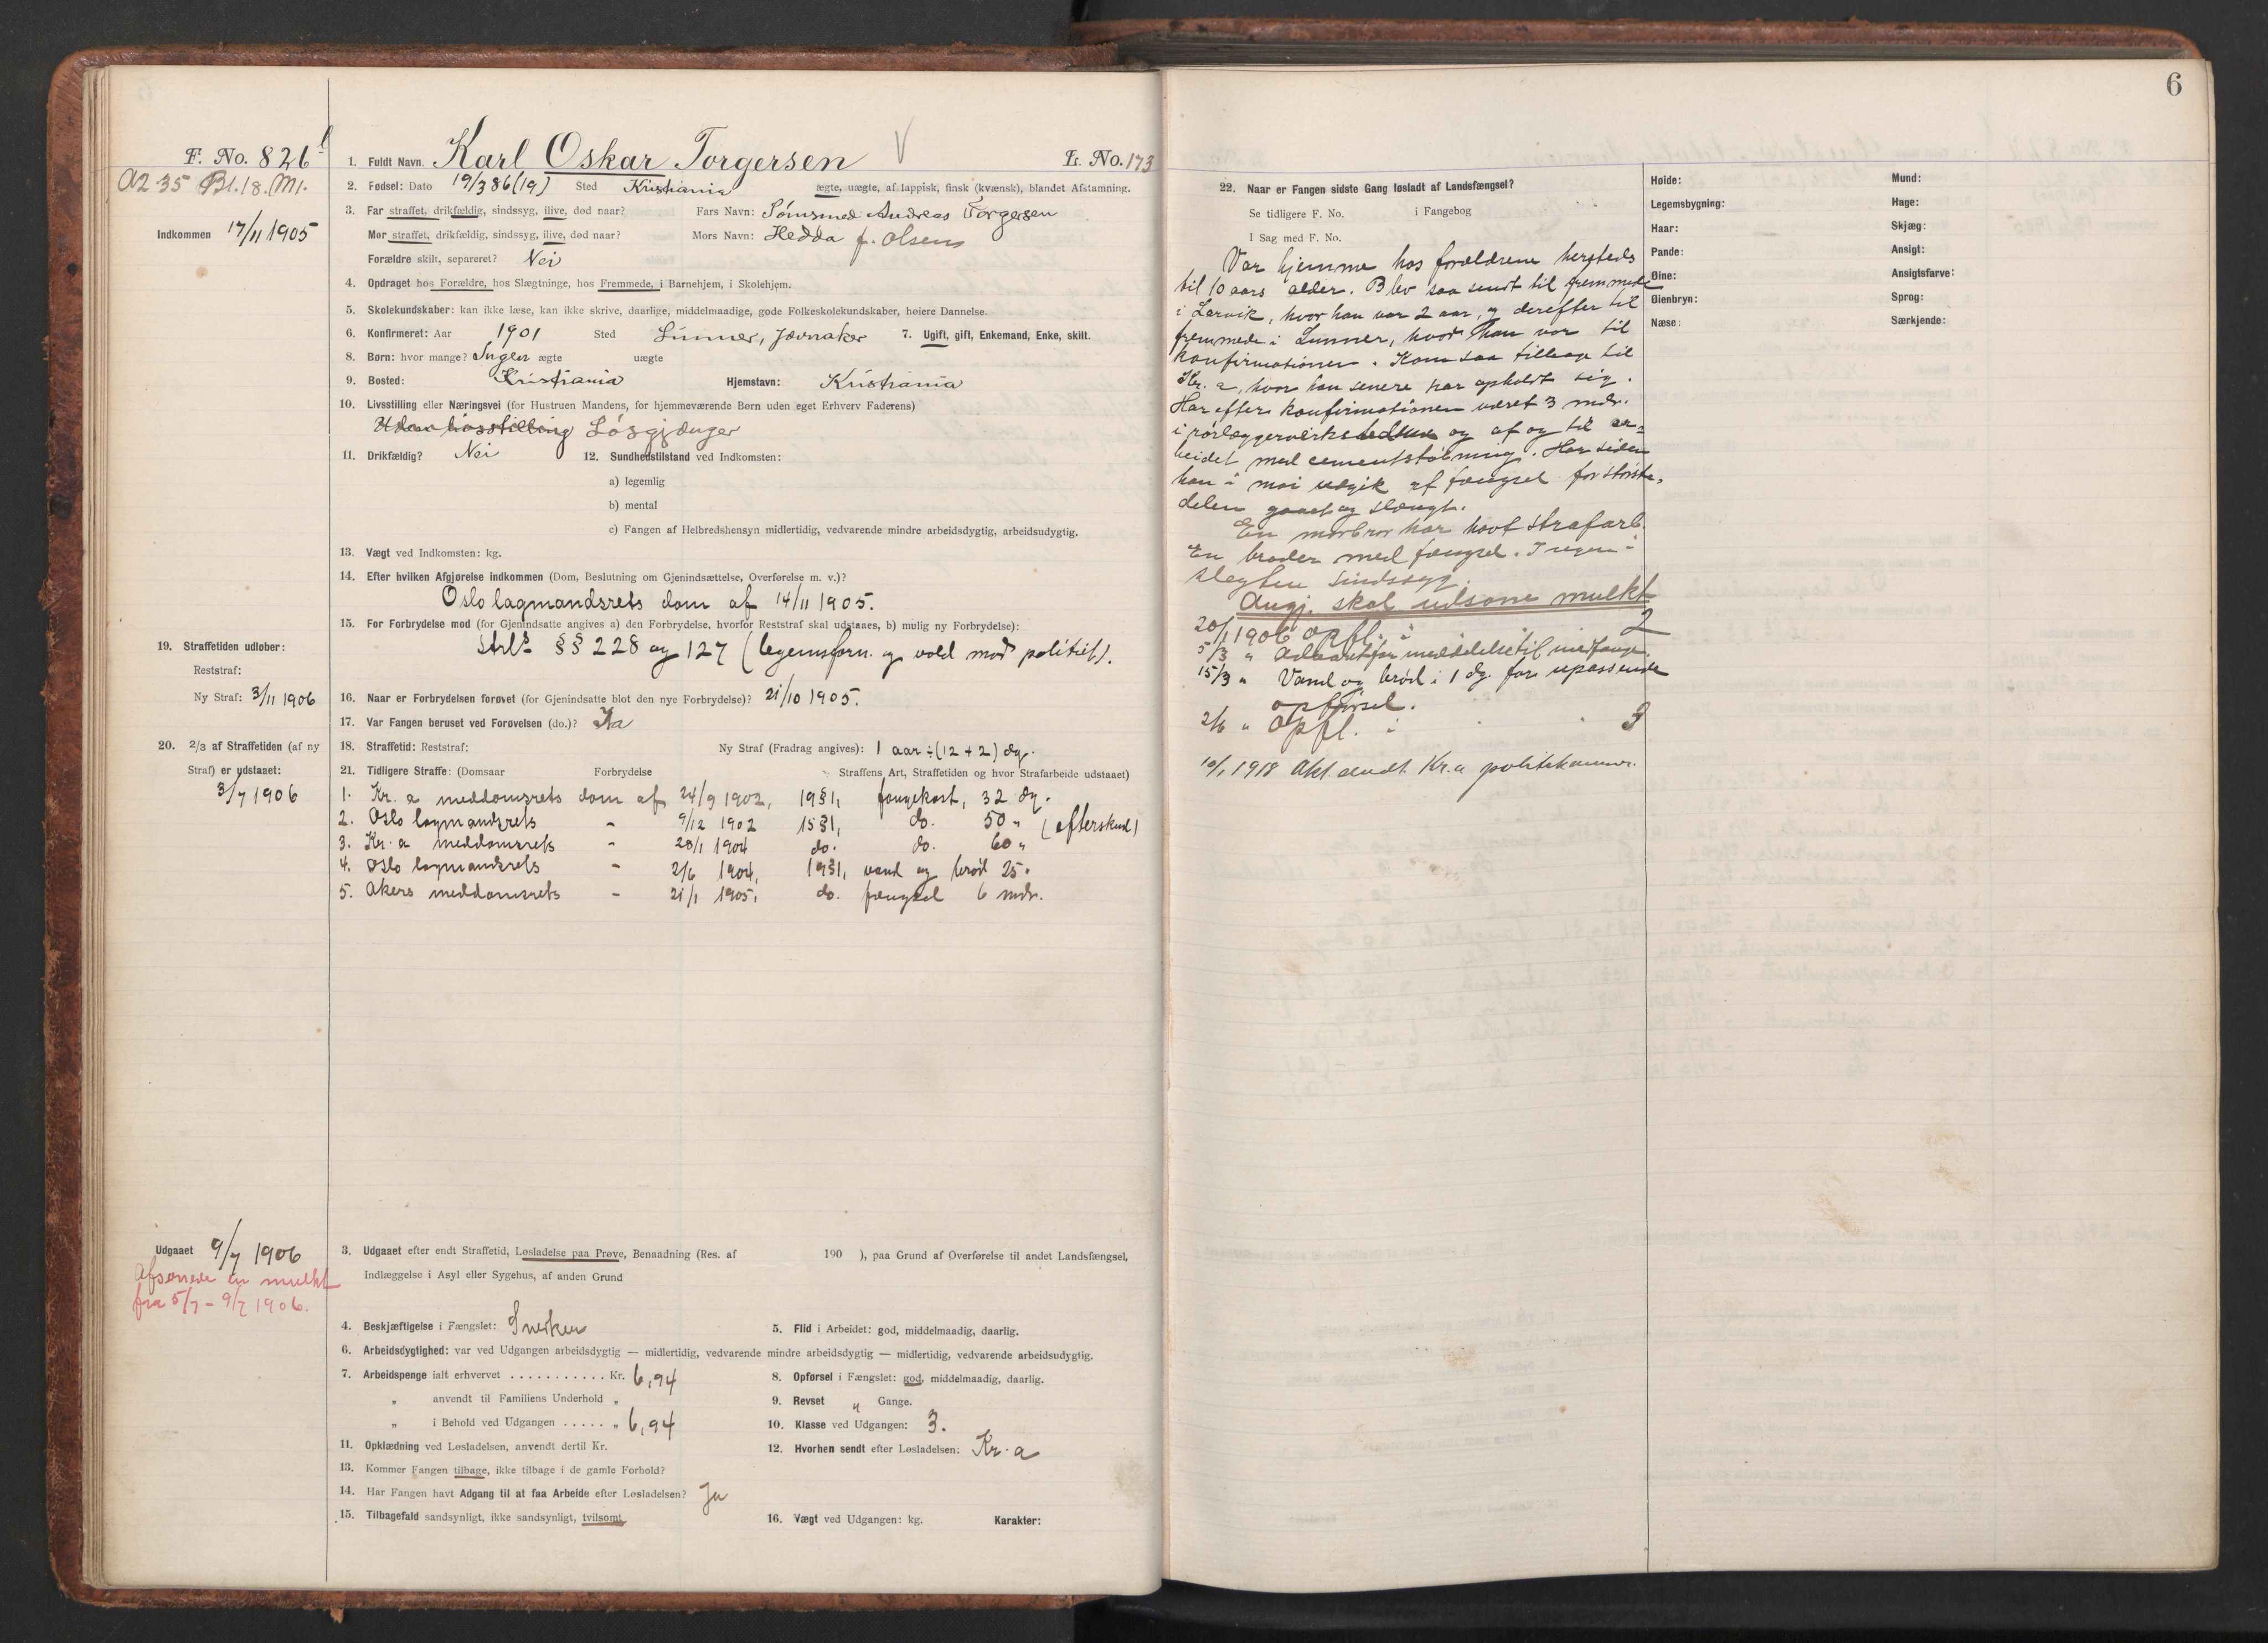 6
F. No. 826
1. Fuldt Navn. Karl Oskar Torgersen V L. No. 173
A2 35 Bl. 18. M1.
2. Fødsel: Dato 19/3 86 (19) Sted Kristiania ægte, uægte, af lappisk, finsk (kvænsk), blandet Afstamning.
3. Far straffet, drikfældig, sindssyg, ilive, død naar? Fars Navn: Sømsmed Andreas Torgersen
Indkommen 17/11 1905
Mor straffet, drikfældig, sindssyg, ilive, død naar? Mors Navn: Hedda f. Olsen
Forældre skilt, separeret? Nei
4. Opdraget hos Forældre, hos Slægtninge, hos Fremmede, i Barnehjem, i Skolehjem.
5. Skolekundskaber: kan ikke læse, kan ikke skrive, daarlige, middelmaadige, gode Folkeskolekundskaber, høiere Dannelse.
6. Konfirmeret: Aar 1901 Sted Lunner, Jævnaker 7. Ugift, gift, Enkemand, Enke, skilt.
8. Børn: hvor mange? Ingen ægte uægte
9. Bosted: Kristiania Hjemstavn: Kristiania
10. Livsstilling eller Næringsvei (for Hustruen Mandens, for hjemmeværende Børn uden eget Erhverv Faderens)
Uden livsstilling Løsgjænger
11. Drikfældig? Nei 12. Sundhedstilstand ved Indkomsten:
a) legemlig
b) mental
c) Fangen af Helbredshensyn midlertidig, vedvarende mindre arbeidsdygtig, arbeidsudygtig.
13. Vægt ved Indkomsten: kg.
14. Efter hvilken Afgjørelse indkommen (Dom, Beslutning om Gjenindsættelse, Overførelse m. v.)?
Oslo lagmandsrets dom af 14/11 1905.
15. For Forbrydelse mod (for Gjenindsatte angives a) den Forbrydelse, hvorfor Reststraf skal udstaaes, b) mulig ny Forbrydelse):
Strls §§ 228 og 127 (legemsforn. og vold mod politiet).
19. Straffetiden udløber:
Reststraf:
Ny Straf: 3/11 1906
16. Naar er Forbrydelsen forøvet (for Gjenindsatte blot den nye Forbrydelse)? 21/10 1905.
17. Var Fangen beruset ved Forøvelsen (do.)? Ja
20. 2/3 af Straffetiden (af ny
Straf) er udstaaet:
3/7 1906
18. Straffetid: Reststraf: Ny Straf (Fradrag angives): 1 aar ÷ (12 + 2) dg.
21. Tidligere Straffe: (Domsaar Forbrydelse Straffens Art, Straffetiden og hvor Strafarbeide udstaaet)
1. Kr.a meddomsrets dom af 24/9 1902, 19§1, fangekost, 32 dg.
2. Oslo lagmandsrets - 9/12 1902 15§1, do. 50 " (efterskud)
3. Kr.a meddomsrets - 20/1 1904 do. do. 60 "
4. Oslo lagmandsrets - 2/6 1904, 19§1, vand og brød 25 "
5. Akers meddomsrets - 21/1 1905, do. fængsel 6 mdr.
Udgaaet 9/7 1906
Afsonede en mulkt
fra 5/7 - 9/7 1906.
3. Udgaaet efter endt Straffetid, Løsladelse paa Prøve, Benaadning (Res. af 190 ), paa Grund af Overførelse til andet Landsfængsel,
Indlæggelse i Asyl eller Sygehus, af anden Grund
4. Beskjæftigelse i Fængslet: Snekker 5. Flid i Arbeidet: god, middelmaadig, daarlig.
6. Arbeidsdygtighed: var ved Udgangen arbeidsdygtig — midlertidig, vedvarende mindre arbeidsdygtig — midlertidig, vedvarende arbeidsudygtig.
7. Arbeidspenge ialt erhvervet . . . . . . . . . . . Kr. 6,94 8. Opførsel i Fængslet: god, middelmaadig, daarlig.
" anvendt til Familiens Underhold " 9. Revset " Gange.
" i Behold ved Udgangen . . . . . " 6,94 10. Klasse ved Udgangen: 3.
11. Opklædning ved Løsladelsen, anvendt dertil Kr. 12. Hvorhen sendt efter Løsladelsen: Kr.a
13. Kommer Fangen tilbage, ikke tilbage i de gamle Forhold?
14. Har Fangen havt Adgang til at faa Arbeide efter Løsladelsen? Ja
15. Tilbagefald sandsynligt, ikke sandsynligt, tvilsomt 16. Vægt ved Udgangen: kg. Karakter:
22. Naar er Fangen sidste Gang løsladt af Landsfængsel?
Se tidligere F. No. i Fangebog
I Sag med F. No.
Var hjemme hos forældrene hersteds
til 10 aars alder. Blev saa sendt til fremmede
i Larvik, hvor han var 2 aar, og derefter til
fremmede i Lunner, hvor han var til
konfirmationen. Kom saa tilbage til
Kr.a, hvor han senere har opholdt sig.
Har efter konfirmationen været 3 mdr.
i rørlæggerverksted og af og til ar-
beidet med cementstøbning. Har siden
han i mai udgik af fængsel for største-
delen gaaet og slængt.
En morbror har havt strafarb.
En broder med fængsel. Ingen i
slegten sindssyg.
Angj. skal udsone mulkt
20/1 1906 Opfl. i 2
5/3 " Advaret for meddelelse til medfange.
15/3 " Vand og brød i 1 dg. for upassende
opførsel.
2/6 " Opfl. i 3
10/1 1918 Akt. sendt Kr.a politikammer.
Høide: Mund:
Legemsbygning: Hage:
Haar: Skjæg:
Pande: Ansigt:
Øine: Ansigtsfarve:
Øienbryn: Sprog:
Næse: Særkjende: